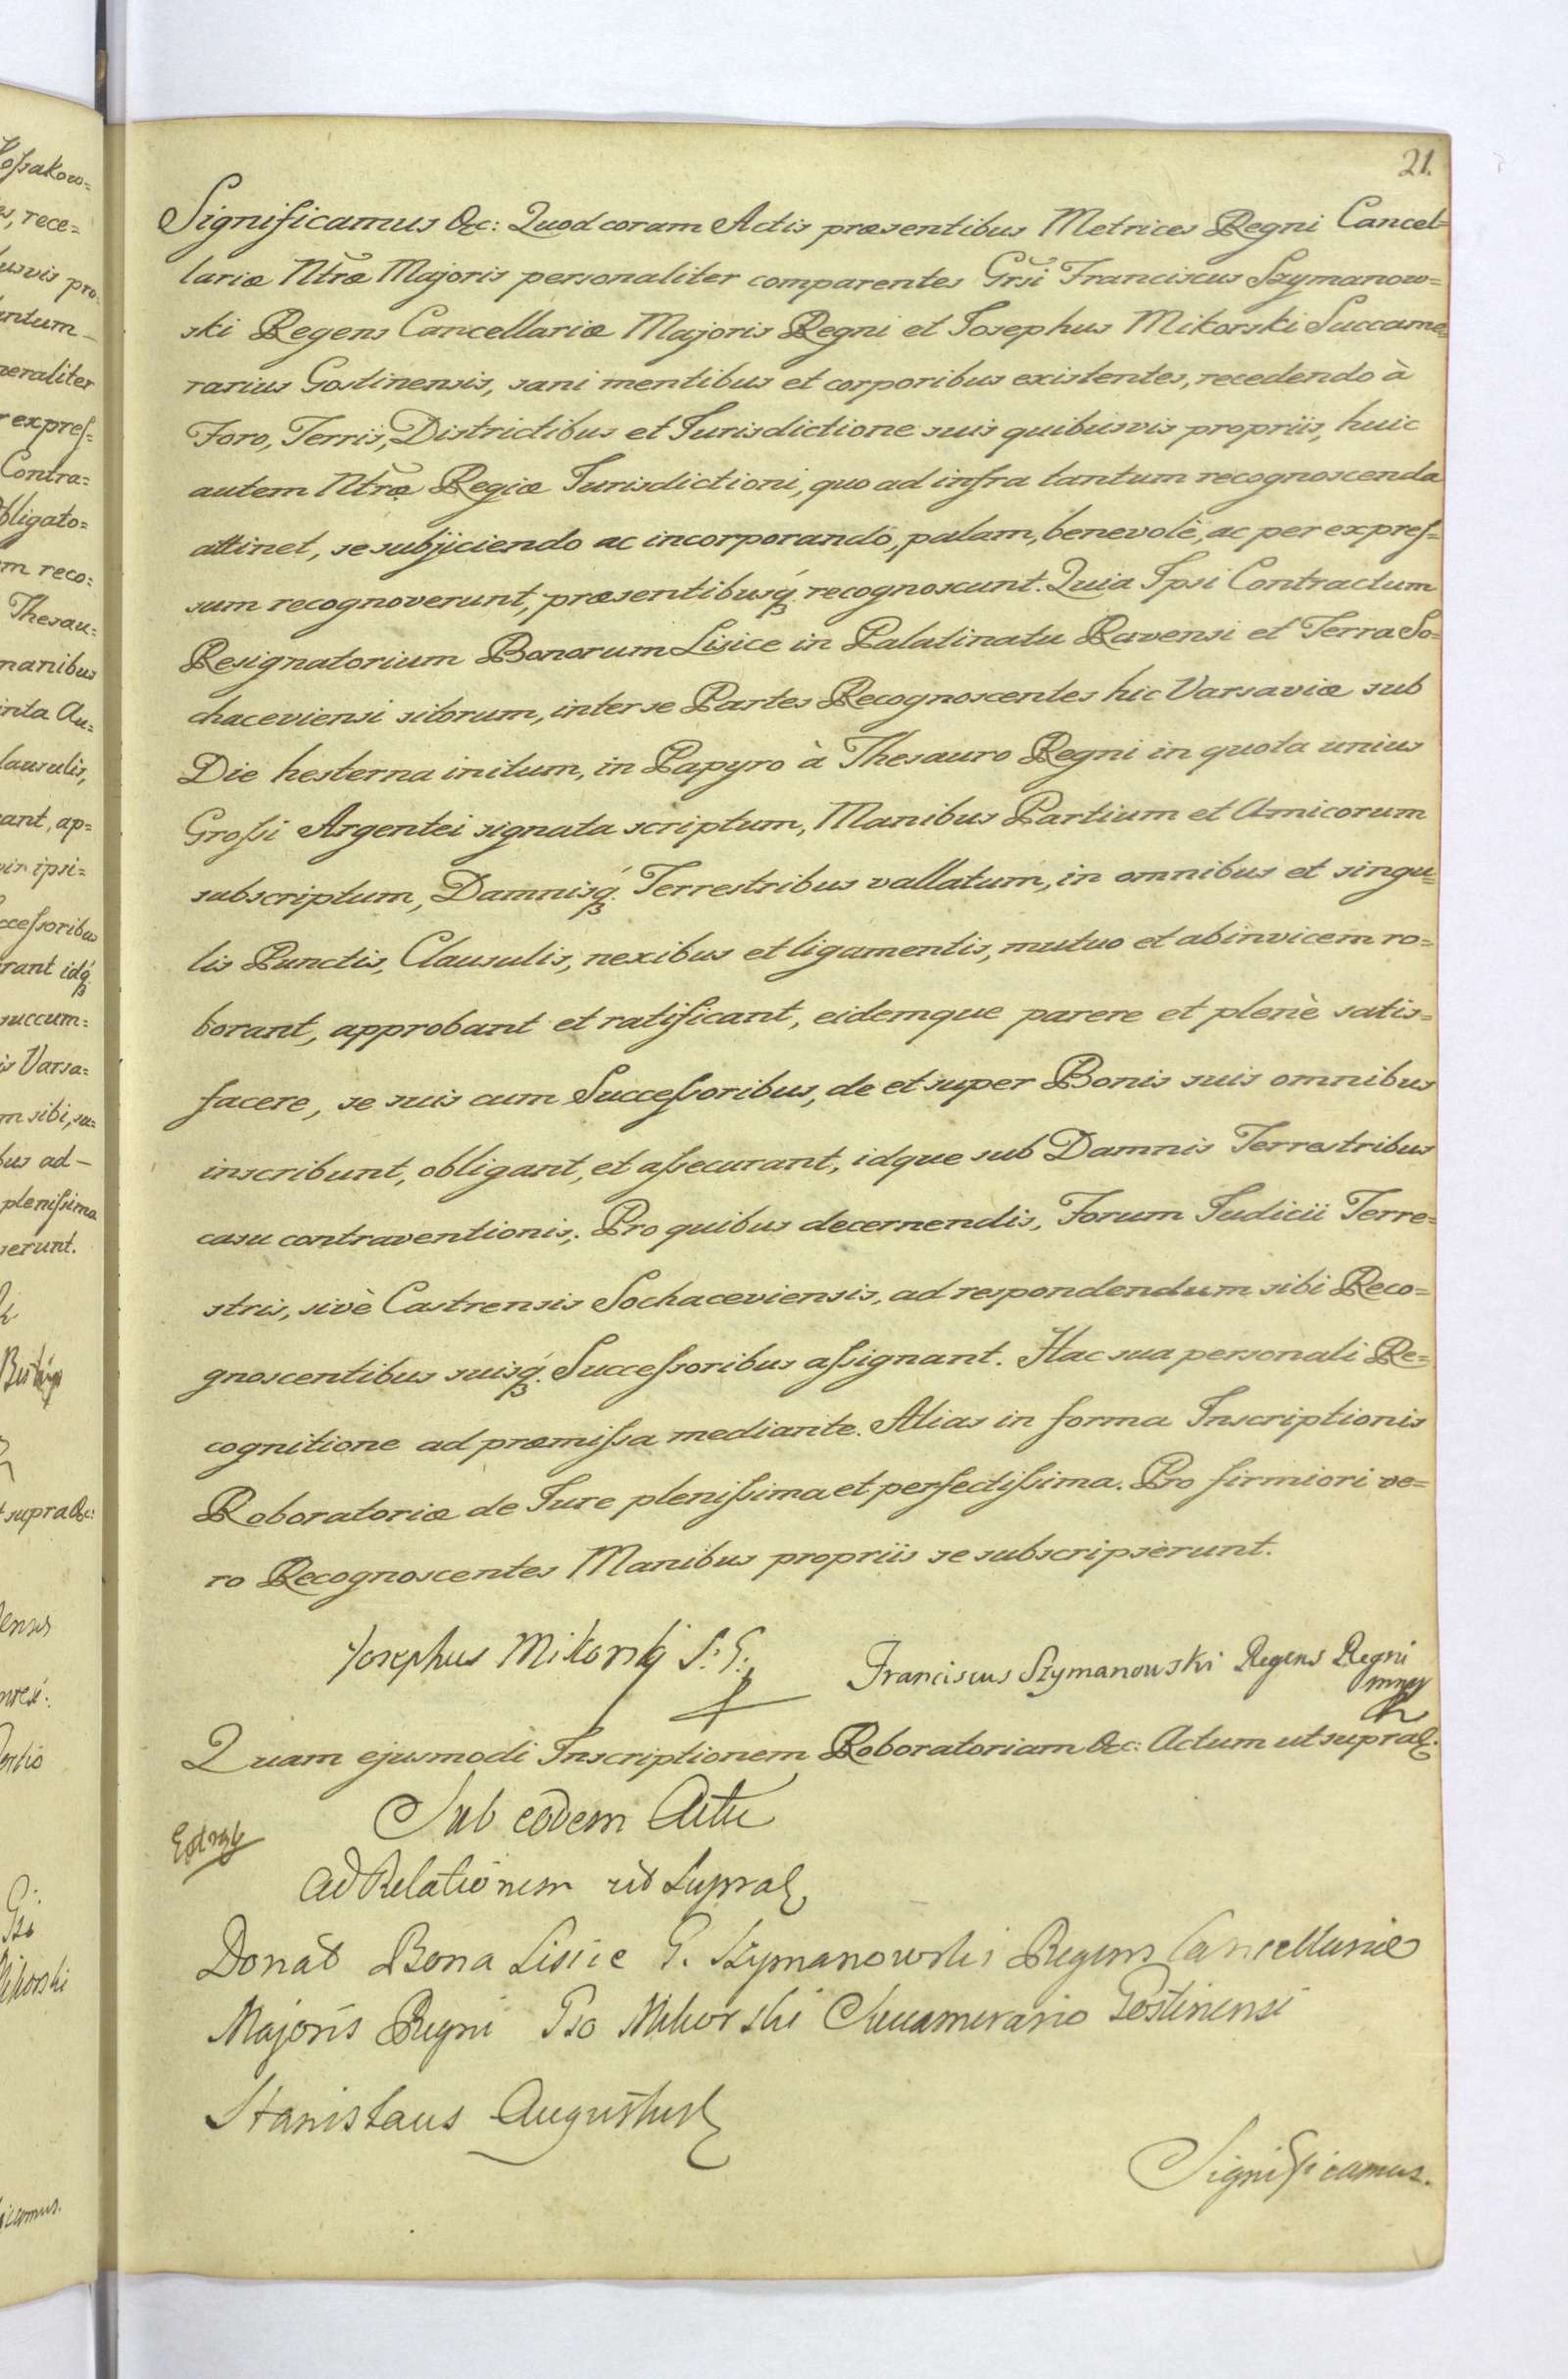 21.
Significamus &c: Quod coram Actis præsentibus Metrices Regni Cancel=
lariæ Ntræ Majoris personaliter comparentes Grsi Franciscus Szymanow=
ski Regens Cancellariæ Majoris Regni et Josephus Mikorski Succame=
rarius Gostinensis, sani mentibus et corporibus existentes, recedendo à
Foro, Terris, Districtibus et Jurisdictione suis quibusvis propriis, huic
autem Ntræ Regiæ Jurisdictioni, quo ad infra tantum recognoscenda
attinet, se subjiciendo ac incorporando, palam, benevolè, ac per expreſ=
sum recognoverunt, præsentibusq́ recognoscunt. Quia Ipsi Contractum
Resignatorium Bonorum Lisice in Palatinatu Ravensi et Terra So=
chaceviensi sitorum, inter se Partes Recognoscentes hic Varsaviæ sub
Die hesterna initum, in Papyro à Thesauro Regni in quota unius
Groſsi Argentei signata scriptum, Manibus Partium et Amicorum
subscriptum, Damnisq́ Terrestribus vallatum, in omnibus et singu=
lis Punctis, Clausulis, nexibus et ligamentis, mutuo et abinvicem ro=
borant, approbant et ratificant, eidemque parere et plenè satis=
facere, se suis cum Succeſsoribus, de et super Bonis suis omnibus
inscribunt, obligant, et aſsecurant, idque sub Damnis Terrestribus
casu contraventionis; Pro quibus decernendis, Forum Judicii Terre=
stris, sivè Castrensis Sochaceviensis, ad respondendum sibi Reco=
gnoscentibus suisq́ Succeſsoribus aſsignant. Hac sua personali Re=
cognitione ad præmiſsa mediante. Alias in forma Inscriptionis
Roboratoriæ de Jure pleniſsima et perfectiſsima. Pro firmiori ve=
ro Recognoscentes Manibus propriis se subscripsèrunt.
Josephus Mikorski S: G:
Franciscus Szymanowski Regens Regni
mppr
Quam ejusmodi Inscriptionem Roboratoriam &c: Actum ut supra &.
Sub eodem Actu
Ad Relationem ut Supra &
Donat Bona Lisice G. Szymanowski Regens Cancellariæ
Majoris Regni Gso Mikorski Succamerario Gostinensi
Stanislaus Augustus
Significamus.